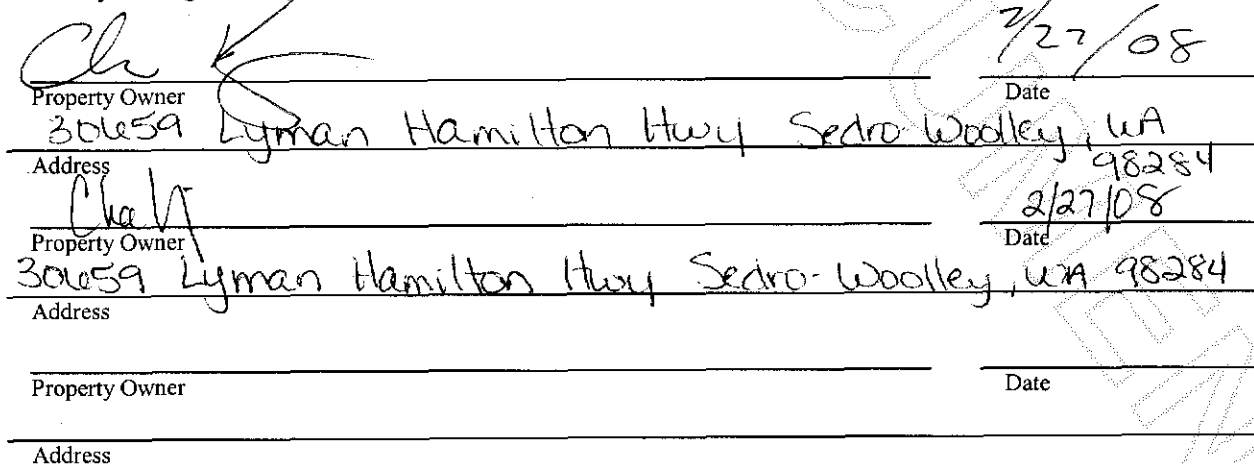 2/27/08
Property Owner Date
30659 Lyman Hamilton Hwy Sedro Woolley, WA
Address 98284
2/27/08
Property Owner Date
30659 Lyman Hamilton Hwy Sedro-Woolley, WA 98284
Address
Property Owner Date
Address